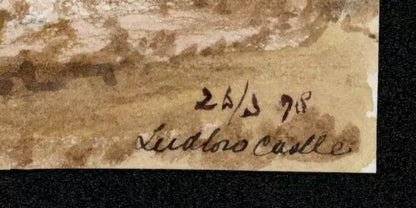 25/5 78
Ludlow Castle